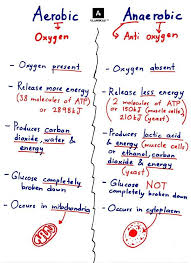 Aerobic
Oxygen
- Oxygen present
- Release more energy
(38 molecules of ATP)
or 2898kJ
- Produces carbon
dioxide, water &
energy
- Glucose completely
broken down
- Occurs in mitochondria
Anaerobic
Anti oxygen
- Oxygen absent
- Release less energy
(2 molecules of ATP
or 150kJ (muscle cells)
210kJ (yeast)
- Produces lactic acid
& energy (muscle cells)
or ethanol, carbon
dioxide & energy
(yeast)
- Glucose NOT
completely broken down
- Occurs in cytoplasm